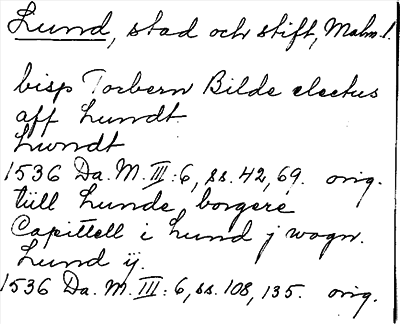 Lund, stad och stift, Malm. l.
bisp Torbern Bilde electus
aff Lundt
Lwndt
1536 Da. M. III: 6, ss. 42, 69. orig.
tiill Lunde, borgere
Capittell i Lund j wogn.
Lund ij.
1536 Da. M. III: 6, ss. 108, 135. orig.